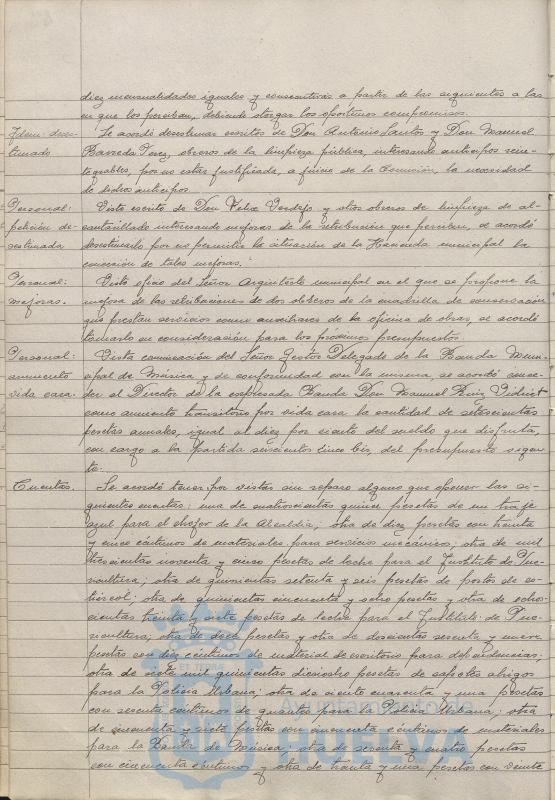 diez mensualidades iguales y consecutivas a partir de las siguientes a las
en que los perciban, debiendo otorgar los oportunos compromisos.
Idem: deses-
timado
Se acordó desestimar escritos de Don Antonio Santos y Don Manuel
Barreda Perez, obreros de la limpieza pública, interesando anticipos rein-
tegrables, por no estar justificada, a juicio de la Comisión, la necesidad
de dichos anticipos.
Personal:
petición de-
sestimada
Visto escrito de Don Felix Verdejo y otros obreros de limpieza de al-
cantarillado interesando mejoras de la retribución que perciben, se acordó
desestimarlo por no permitir la situación de la Hacienda municipal la
concesión de tales mejoras.
Personal:
mejoras.
Visto oficio del Señor Arquitecto municipal en el que se propone la
mejora de las retribuciones de dos obreros de la cuadrilla de conservación
que prestan servicios como auxiliares de la oficina de obras, se acordó
tomarlo en consideración para los próximos presupuestos.
Personal:
aumento
vida cara.
Vista comunicación del Señor Gestor Delegado de la Banda Muni-
cipal de Música, y de conformidad con la misma, se acordó conce-
der al Director de la expresada Banda Don Manuel Ruiz Vidriet
como aumento transitorio por vida cara la cantidad de setecientas
pesetas anuales, igual al diez por ciento del sueldo que disfruta,
con cargo a la partida seiscientos cinco bis, del presupuesto vigen-
te.
Cuentas.
Se acordó tener por vistas sin reparo alguno que oponer las si-
guientes cuentas: una de cuatrocientas quince pesetas de un traje
azul para el chofer de la Alcaldía; otra de diez pesetas con treinta
y cinco céntimos de materiales para servicios mecánicos; otra de mil
trescientas noventa y cinco pesetas de leche para el Instituto de Pue-
ricultura; otra de quinientas setenta y seis pesetas de portes de es-
tiercol; otra de quinientas cincuenta y ocho pesetas y otra de ocho-
cientas treinta y siete pesetas de leche para el Instituto de Pue-
ricultura; otra de doce pesetas y otra de doscientas sesenta y nueve
pesetas con diez céntimos de material de escritorio para dependencias;
otra de siete mil quinientas dieciocho pesetas de capotes abrigos
para la Policía Urbana; otra de ciento cuarenta y una pesetas
con sesenta céntimos de guantes para la Policía Urbana; otra
de cincuenta y siete pesetas con cincuenta céntimos de materiales
para la Banda de Música; otra de sesenta y cuatro pesetas
con cincuenta céntimos y otra de treinta y una pesetas con veinte